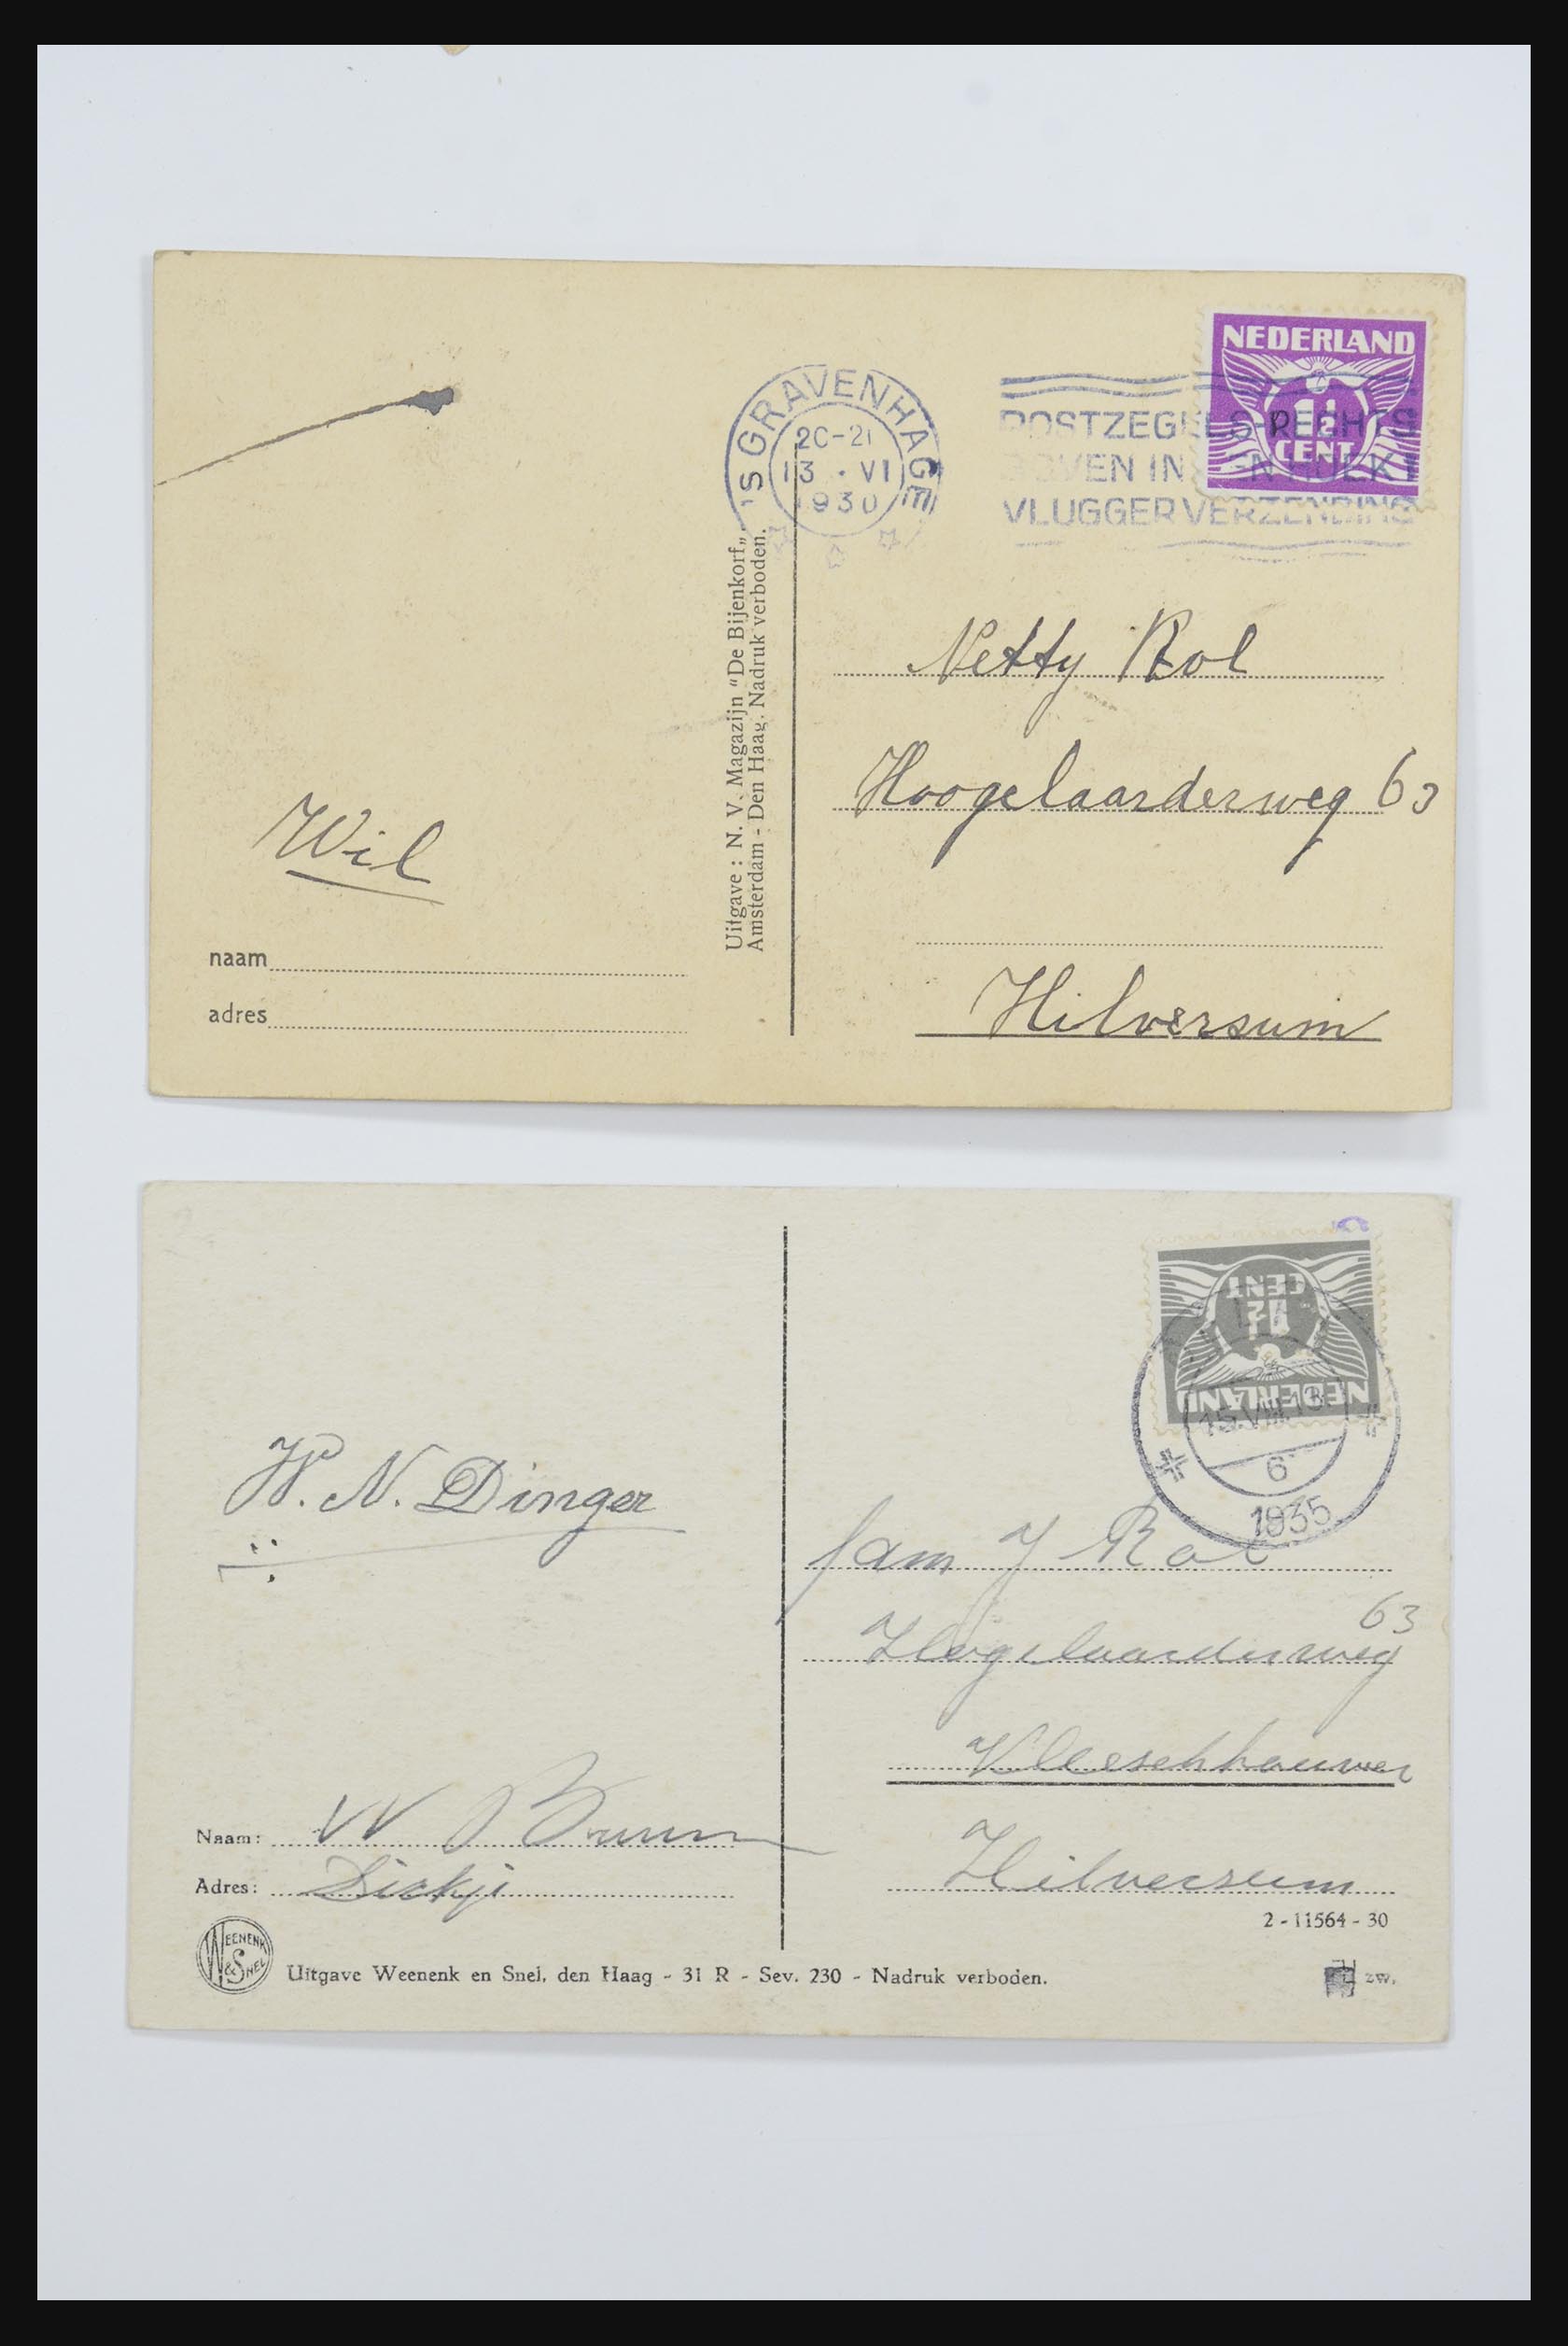 NEDERLAND
1½
CENT
'S GRAVENHAGE
20-21
13 · VI
1930
POSTZEGELS RECHTS
BOVEN IN DEN HOEK!
VLUGGER VERZENDING
Uitgave : N. V. Magazijn "De Bijenkorf„
Amsterdam - Den Haag. Nadruk verboden.
Netty Rol
Hoogelaarderweg 63
Hilversum
Wil
naam
adres
NEDERLAND
1½
CENT
15.VIII.13
6
1935
W. N. Dinger
fam J Rol
63
Hogelaarderweg
Vleeschhouwer
Hilversum
Naam: W
Adres: Dickje
WEENENK & SNEL
2 - 11564 - 30
Uitgave Weenenk en Snel, den Haag - 31 R - Sev. 230 - Nadruk verboden.
zw.